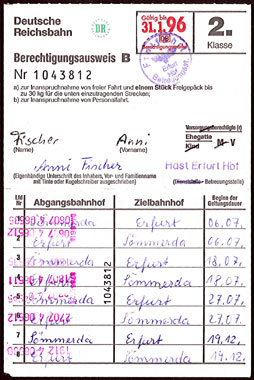 Deutsche
Reichsbahn
DR
Gültig bis
31.1.96
Berechtigungsausweis
2.
Klasse
Berechtigungsausweis B
Nr 1043812
a) zur Inanspruchnahme von freier Fahrt und einem Stück Freigepäck bis
zu 30 kg für die unten einzutragenden Strecken;
b) zur Inanspruchnahme von Personalfahrt.
Erfurt
Hbf
Fischer Anni
Versorgungsberechtigte(r)
Ehegatte
Kind M-V
(Name) (Vorname)
Anni Fischer Hast Erfurt Hbf
(Eigenhändige Unterschrift des Inhabers, Vor- und Familienname
mit Tinte oder Kugelschreiber ausgeschrieben)
(Dienststelle - Betreuungsstelle)
Lfd
Nr
Abgangsbahnhof Zielbahnhof Beginn der
Geltungsdauer
Erfurt 06.07.
2 Erfurt Sömmerda 06.07.
Sömmerda Erfurt 18.07.
Erfurt Sömmerda 18.07.
5 Sömmerda Erfurt 27.07.
Erfurt Sömmerda 27.07.
7 Sömmerda Erfurt 19.12.
8 Erfurt Sömmerda 19.12.
1043812